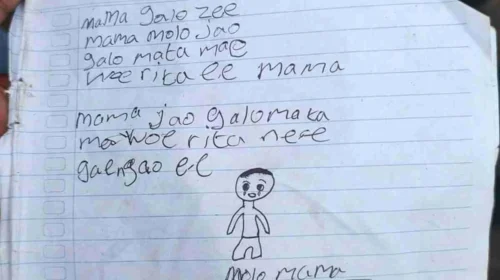 mama galo zee
mama molo jao
galo mata mae
woe rita ee mama
mama jao galomata
woe rita nere
gaengao ee
molo mama